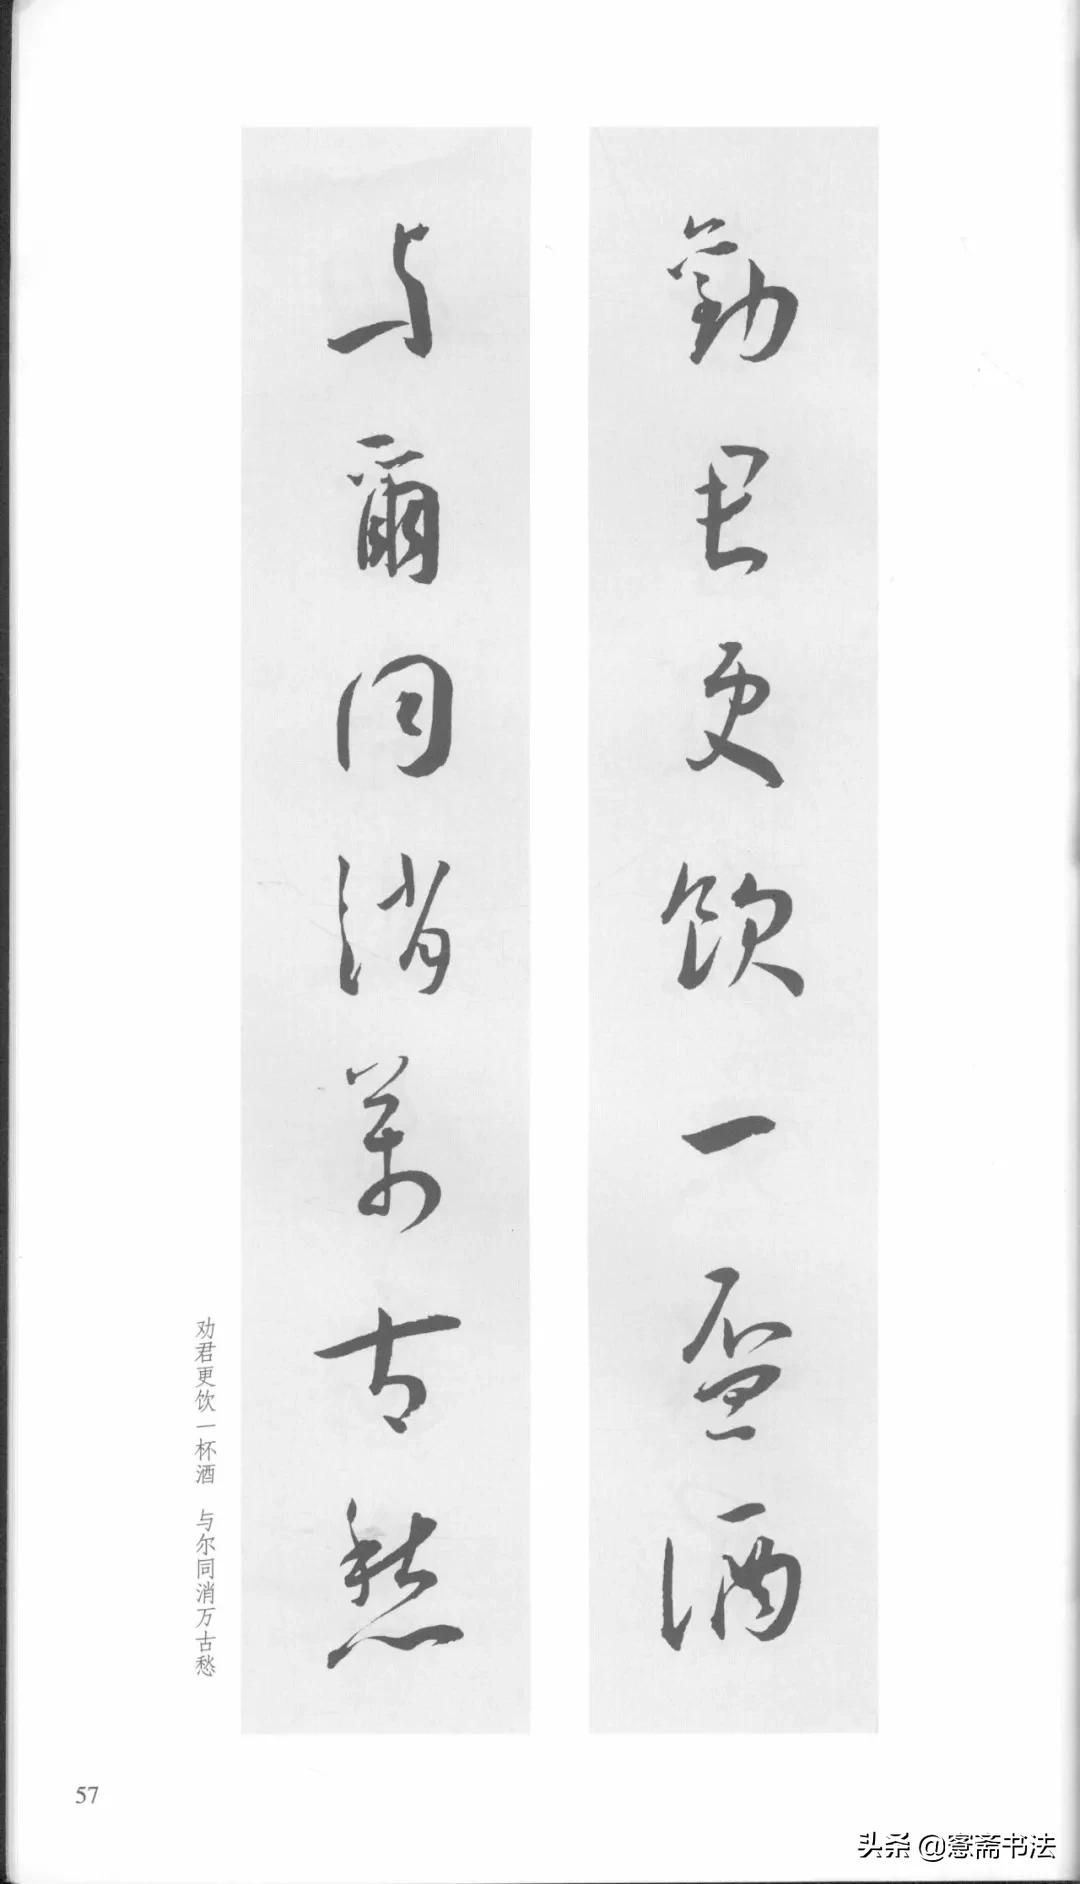 勸君更飲一盃酒
与爾同消萬古愁
劝君更饮一杯酒 与尔同消万古愁
57
头条 @窓斋书法